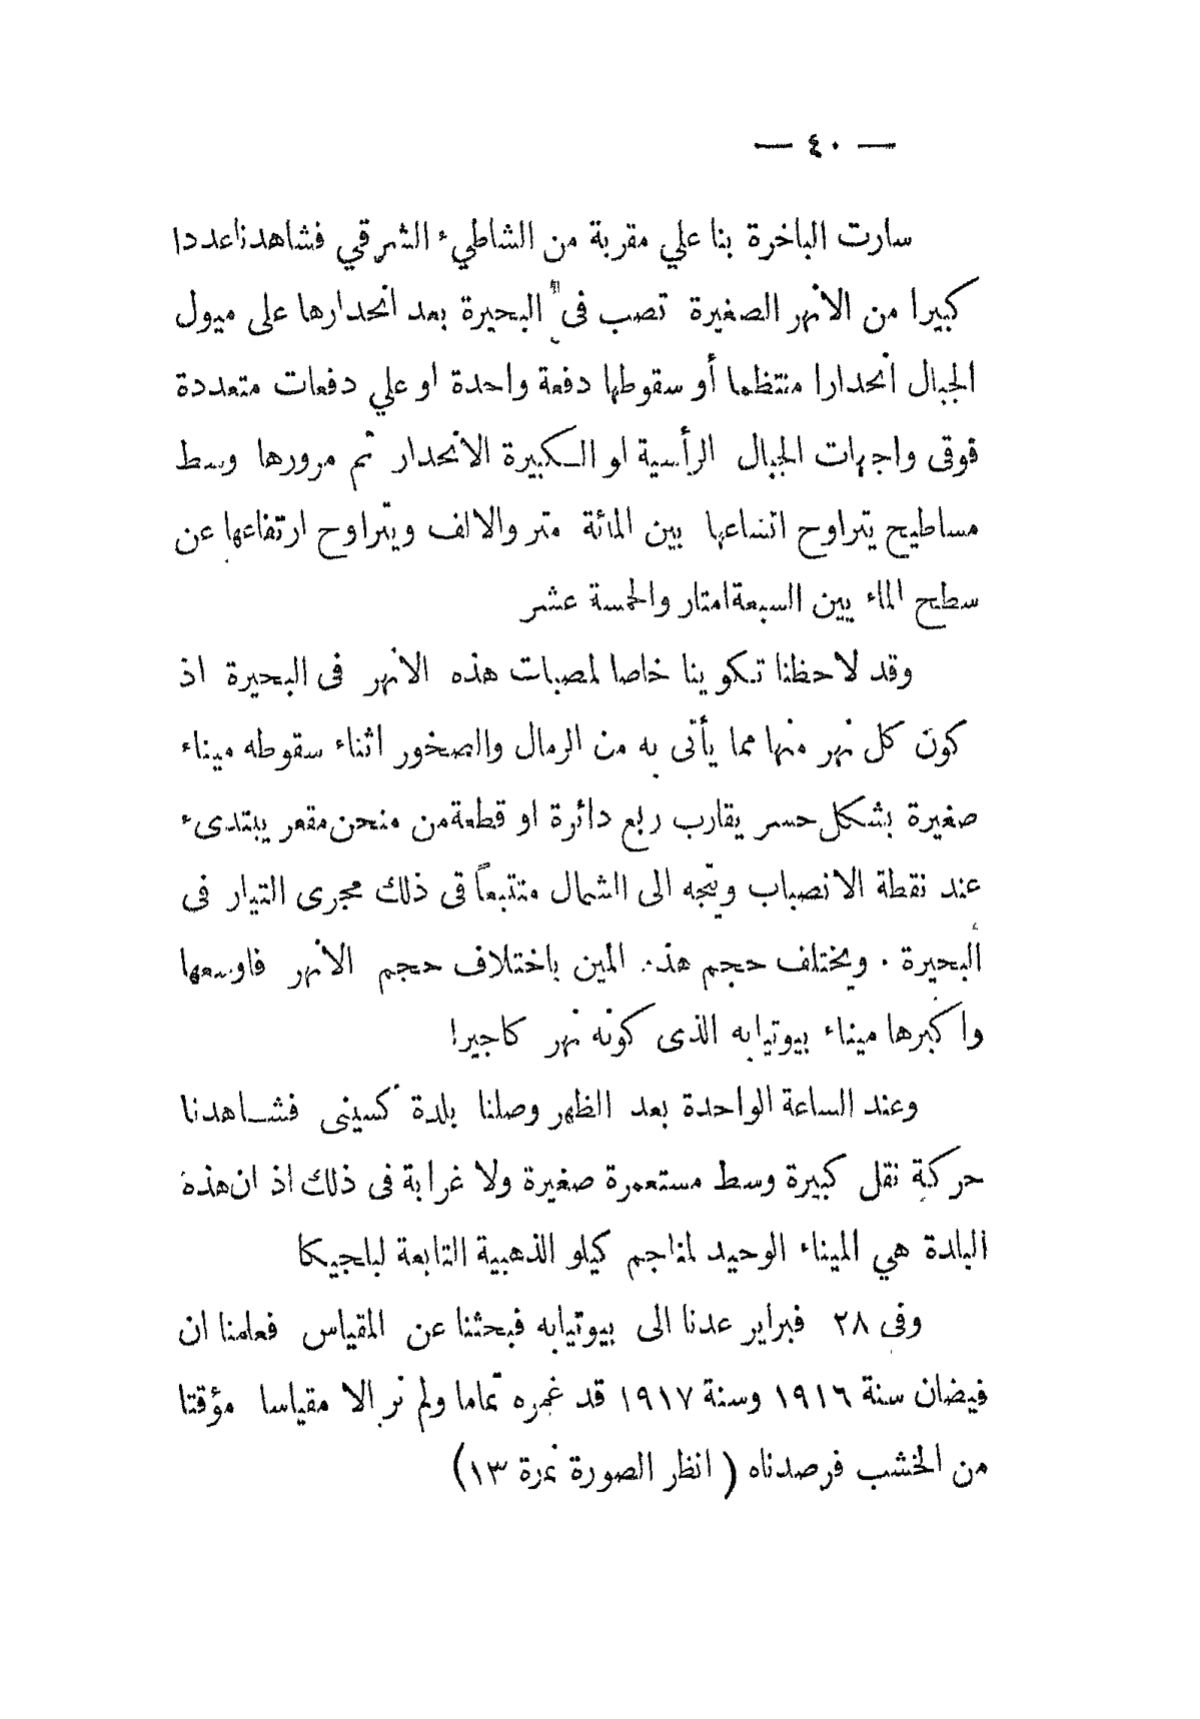 — ٤٠ —
سارت الباخرة بنا علي مقربة من الشاطيء الشرقي فشاهدنا عددا
كبيرا من الانهر الصغيرة تصب فى البحيرة بعد انحدارها على ميول
الجبال انحدارا منتظما أو سقوطها دفعة واحدة او علي دفعات متعددة
فوقى واجهات الجبال الرأسية او الكبيرة الانحدار ثم مرورها وسط
مساطيح يتراوح اتساعها بين المائة متر والالف ويتراوح ارتفاعها عن
سطح الماء بين السبعة امتار والخمسة عشر
وقد لاحظنا تكوينا خاصا لمصبات هذه الانهر فى البحيرة اذ
كون كل نهر منها مما يأتى به من الرمال والصخور اثناء سقوطه ميناء
صغيرة بشكل حسر يقارب ربع دائرة او قطعة من منحن مقعر يبتدىء
عند نقطة الانصباب ويتجه الى الشمال متتبعاً فى ذلك مجرى التيار فى
البحيرة . ويختلف حجم هذه المين باختلاف حجم الانهر فاوسعها
واكبرها ميناء بيوتيابه الذى كونه نهر كاجيرا
وعند الساعة الواحدة بعد الظهر وصلنا بلدة كسينى فشاهدنا
حركة نقل كبيرة وسط مستعمرة صغيرة ولا غرابة فى ذلك اذ ان هذه
البلدة هي الميناء الوحيد لمناجم كيلو الذهبية التابعة لبلجيكا
وفى ٢٨ فبراير عدنا الى بيوتيابه فبحثنا عن المقياس فعلمنا ان
فيضان سنة ١٩١٦ وسنة ١٩١٧ قد غمره تماما ولم نر الا مقياسا مؤقتا
من الخشب فرصدناه ( انظر الصورة نمرة ١٣)